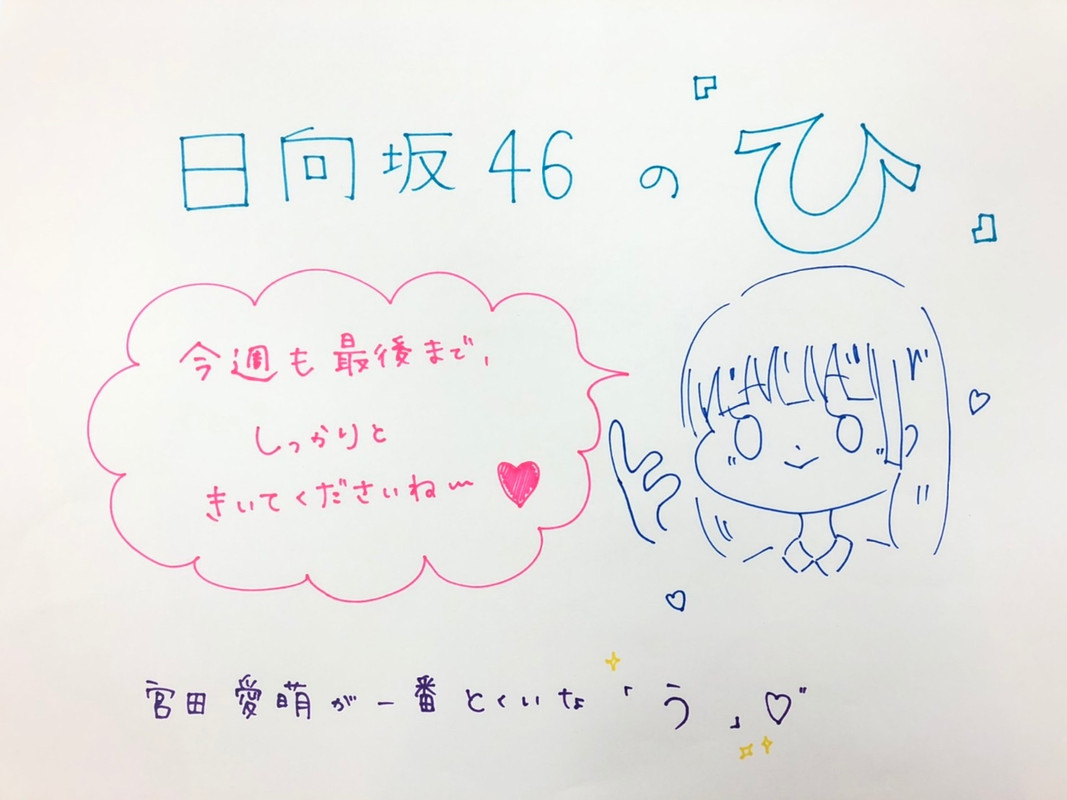 日向坂46のひ
今週も最後まで、
しっかりと
きいてくださいね〜
宮田愛萌が一番とくいな「う」♡"